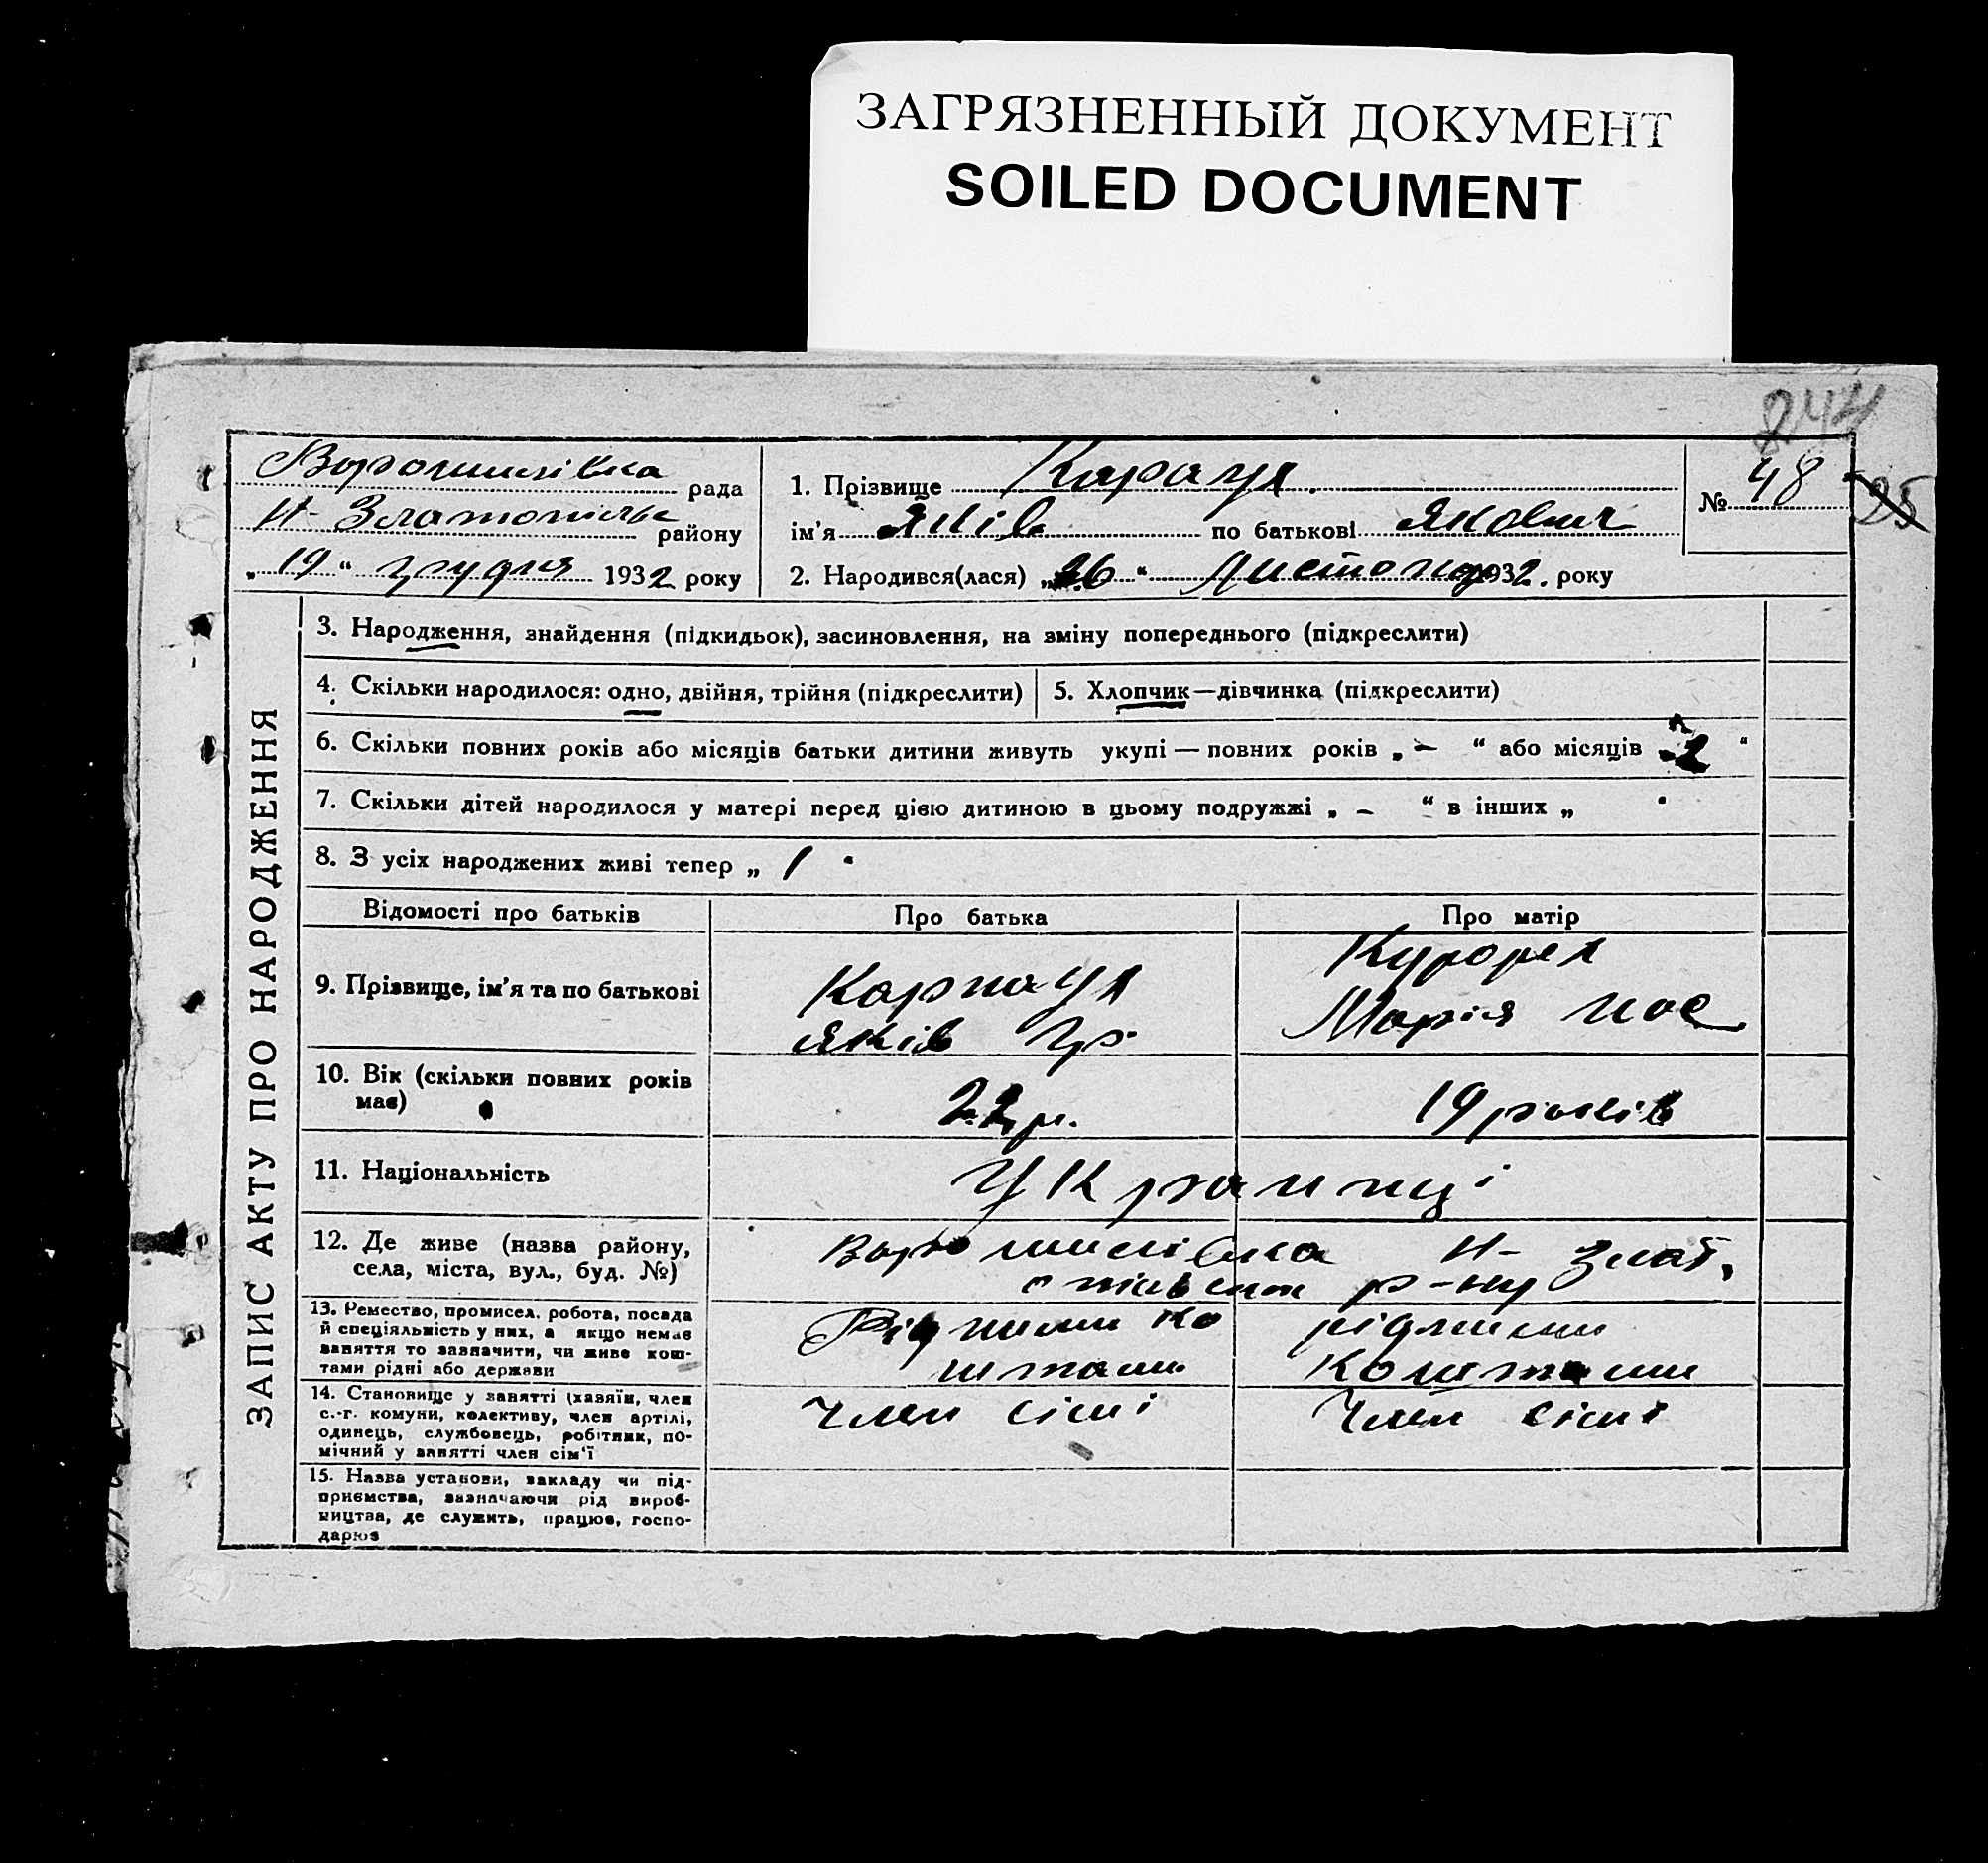 ЗАГРЯЗНЕННЫЙ ДОКУМЕНТ
SOILED DOCUMENT
844
Ворошилівка рада
Н-Златопільс району
„19“ грудня 1932 року
1. Прізвище
ім'я Яків по батькові Якович
2. Народився(лася) „26“ Листопад 1932. року
№ 48
25
ЗАПИС АКТУ ПРО НАРОДЖЕННЯ
3. Народження, знайдення (підкидьок), засиновлення, на зміну попереднього (підкреслити)
4. Скільки народилося: одно, двійня, трійня (підкреслити)
5. Хлопчик—дівчинка (підкреслити)
6. Скільки повних років або місяців батьки дитини живуть укупі — повних років „ – “ або місяців 2 “
7. Скільки дітей народилося у матері перед цією дитиною в цьому подружжі „ – “ в інших „ “
8. З усіх народжених живі тепер „ 1 “
Відомості про батьків
Про батька
Про матір
9. Прізвище, ім'я та по батькові
Яків Гр.
Марія Йос
10. Вік (скільки повних років
має)
22 р.
19 років
11. Національність
Українці
12. Де живе (назва району,
села, міста, вул., буд. №)
Ворошилівка Н-Злат.
р-ну
13. Ремество, промисел, робота, посада
й спеціяльність у них, а якщо немає
заняття то зазначити, чи живе кош-
тами рідні або держави
Рідними ко
штами
рідними
коштами
14. Становище у занятті (хазяїн, член
с.-г. комуни, колективу, член артілі,
одинець, службовець, робітник, по-
мічний у занятті член сім'ї
Член сімі
Член сімі
15. Назва установи, закладу чи під-
приємства, зазначаючи рід вироб-
ництва, де служить, працює, госпо-
дарює